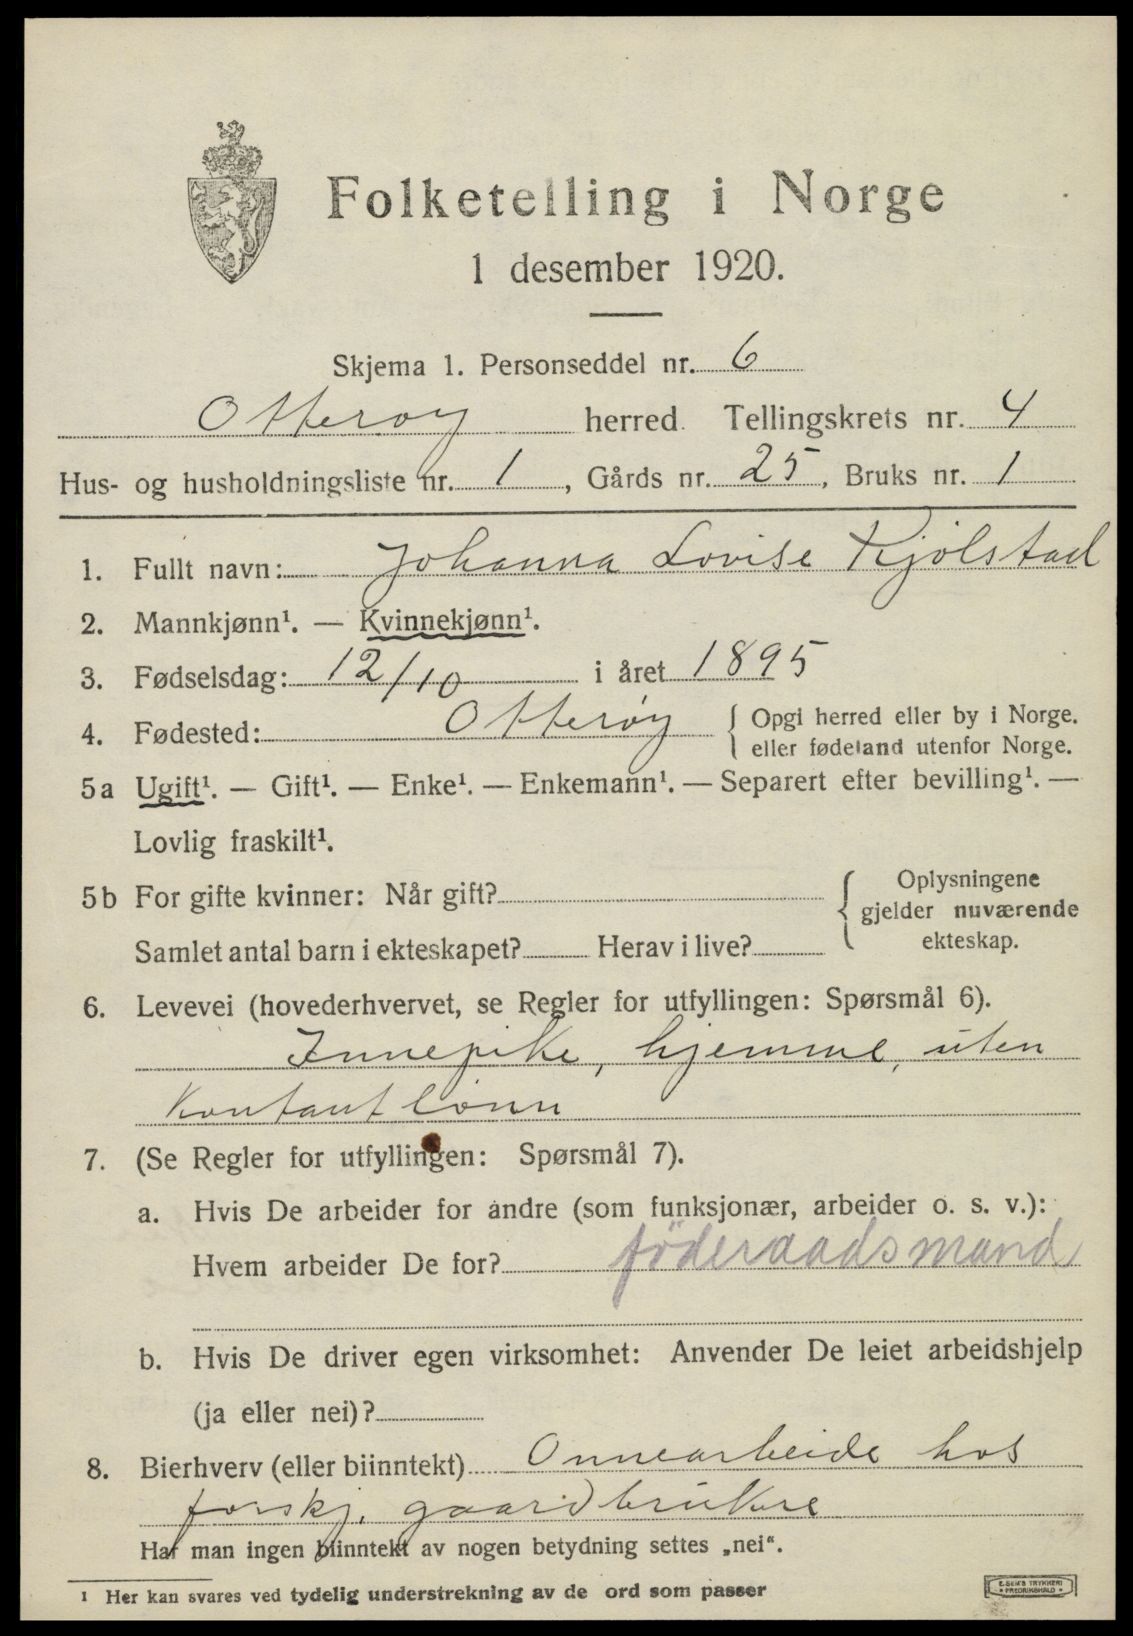 Folketelling i Norge
1 desember 1920.
Skjema 1. Personseddel nr. 6
Otterøy herred. Tellingskrets nr. 4
Hus- og husholdningsliste nr. 1, Gårds nr. 25, Bruks nr. 1
1. Fullt navn: Johanna Lovise Kjølstad
2. Mannkjønn¹. — Kvinnekjønn¹.
3. Fødselsdag: 12/10 i året 1895
4. Fødested: Otterøy { Opgi herred eller by i Norge.
eller fødeland utenfor Norge.
5a Ugift¹. — Gift¹. — Enke¹. — Enkemann¹. — Separert efter bevilling¹. —
Lovlig fraskilt¹.
5b For gifte kvinner: Når gift? { Oplysningene
gjelder nuværende
Samlet antal barn i ekteskapet? Herav i live? ekteskap.
6. Levevei (hovederhvervet, se Regler for utfyllingen: Spørsmål 6).
Innepike, hjemme, uten
Kontantlönn
7. (Se Regler for utfyllingen: Spørsmål 7).
a. Hvis De arbeider for andre (som funksjonær, arbeider o. s. v.):
Hvem arbeider De for? föderaadsmand
b. Hvis De driver egen virksomhet: Anvender De leiet arbeidshjelp
(ja eller nei)?
8. Bierhverv (eller biinntekt) Onnearbeide hos
forskj. gaardbrukere
Har man ingen biinntekt av nogen betydning settes „nei“.
¹ Her kan svares ved tydelig understrekning av de ord som passer
E. SEM'S TRYKKERI
FREDRIKSHALD